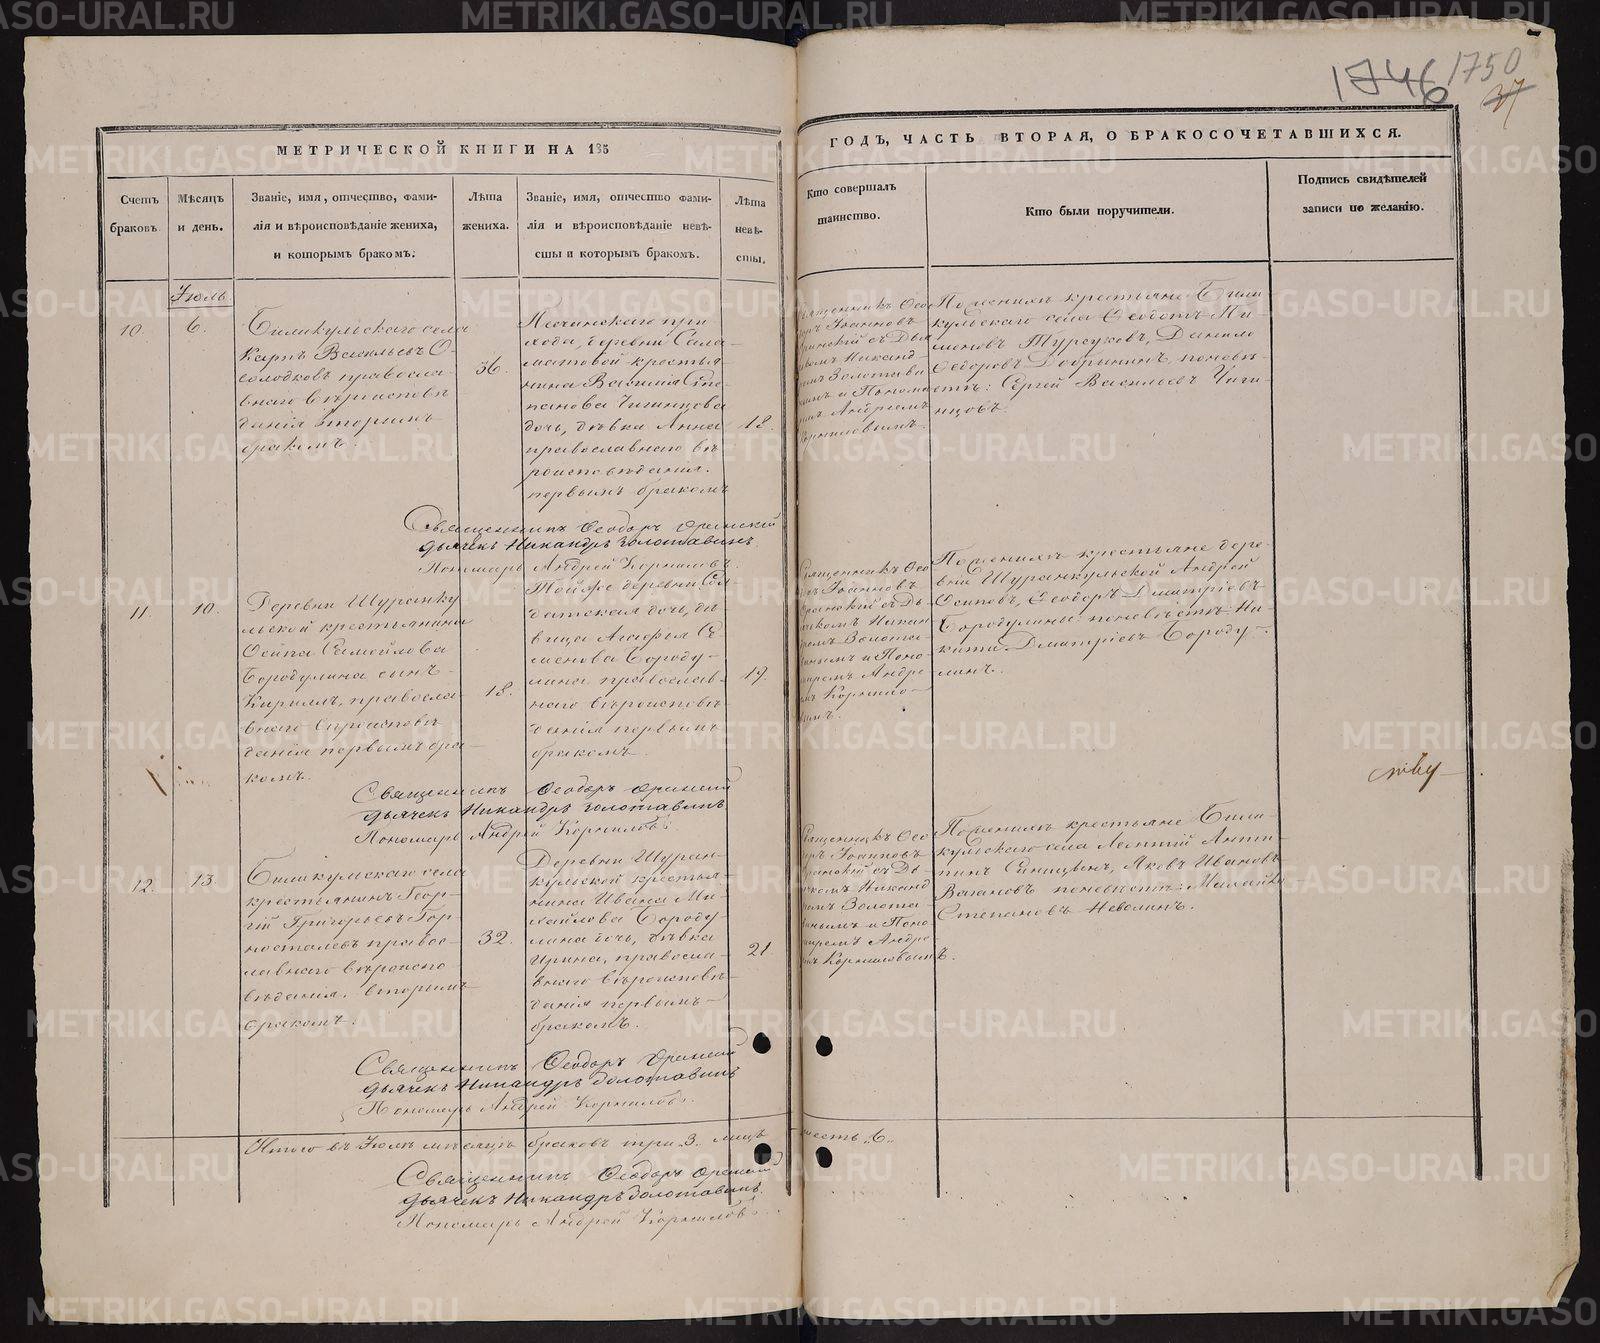 1746 1750
37
МЕТРИЧЕСКОЙ КНИГИ НА 185
ГОДЪ, ЧАСТЬ ВТОРАЯ, О БРАКОСОЧЕТАВШИХСЯ.
Счетъ
браковъ
Мѣсяцъ
и день.
Званіе, имя, отчество, фами-
лія и вѣроисповѣданіе жениха,
и которымъ бракомъ.
Лѣта
жениха.
Званіе, имя, отчество фами-
лія и вѣроисповѣданіе невѣ-
сты и которымъ бракомъ.
Лѣта
невѣ-
сты.
Кто совершалъ
таинство.
Кто были поручители.
Подпись свидѣтелей
записи по желанію.
Іюль
10.
6.
Биликульскаго села
Карпъ Васильевъ О-
солодковъ правосла-
внаго вѣроисповѣ-
данія вторымъ
бракомъ.
36.
прихода, деревни Сала-
матовой крестья-
нина Василія Сте-
панова Чигинцова
дочь, дѣвка Анна
православнаго вѣ-
роисповѣданія.
первымъ бракомъ
18.
Священникъ Ѳео-
доръ Іоанновъ
съ Дья-
комъ Никанд-
ромъ Золотави-
нымъ и Понома-
ремъ Андреемъ
Корниловымъ.
Поженихѣ крестьяне Били-
кульскаго села Ѳедотъ Пи-
меновъ Турсуковъ, Данило
Ѳедоровъ Добрынинъ, поневѣ-
стѣ: Сергей Васильевъ Чиги-
нцовъ.
Священникъ Ѳеодоръ
Дьячекъ Никандръ Золотавинъ
Пономарь Андрей Корниловъ.
11.
10.
Деревни Шуранку-
льской крестьянина
Осипа Самойлова
Бородулина сынъ
Кириллъ, правосла-
внаго вѣроисповѣ-
данія первымъ бра-
комъ.
18.
Той же деревни Сол-
датская дочь, дѣ-
вица Агафья Се-
менова Бороду-
лина православ-
наго вѣроисповѣ-
данія первымъ
бракомъ.
19.
Священникъ Ѳео-
доръ Іоанновъ
съ Дья-
комъ Никан-
дромъ Золота-
винымъ и Поно-
маремъ Андре-
емъ Корнило-
вымъ.
Поженихѣ крестьяне дере-
вни Шуранкульской Андрей
Осиповъ, Ѳеодоръ Димитріевъ
Бородулины: поневѣстѣ: Ни-
кита Димитріевъ Бороду-
линъ.
Священникъ Ѳеодоръ
Дьячекъ Никандръ Золотавинъ
Пономарь Андрей Корниловъ.
12.
13.
Биликульскаго села
крестьянинъ Геор-
гій Григорьевъ Гор-
носталевъ правос-
лавнаго вѣроиспо-
вѣданія. вторымъ
бракомъ.
32.
Деревни Шуран-
кульской крестья-
нина Ивана Ми-
хайлова Бороду-
лина дочь, дѣвка
Ирина, правосла-
внаго вѣроисповѣ-
данія первымъ
бракомъ.
21.
Священникъ Ѳео-
доръ Іоанновъ
съ Дья-
комъ Никанд-
ромъ Золота-
винымъ и Поно-
маремъ Андре-
емъ Корниловымъ.
Поженихѣ крестьяне Били-
кульскаго села Леонтій Анти-
пинъ Синицынъ, Яковъ Ивановъ
Вагановъ поневѣстѣ: Малафѣй
Степановъ Неволинъ.
Священникъ Ѳеодоръ
Дьячекъ Никандръ Золотавинъ
Пономарь Андрей Корниловъ.
Итого въ Іюлѣ мѣсяцѣ браковъ три „3. лицъ шесть „6„
Священникъ Ѳеодоръ
Дьячекъ Никандръ Золотавинъ.
Пономарь Андрей Корниловъ.
METRIKI.GASO-URAL.RU